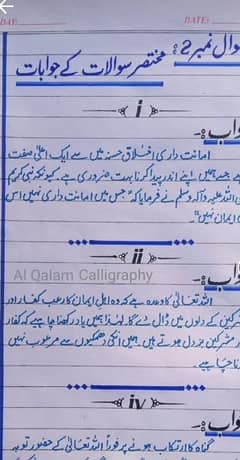 DAY: DATE:
سوال نمبر 2:
مختصر سوالات کے جوابات
i
جواب:-
امانت داری اخلاق حسنہ میں سے ایک اعلیٰ صفت
ہے جسے ہمیں اپنے اندر پیدا کرنا بہت ضروری ہے۔ کیونکہ نبی کریم
صلی اللہ علیہ وآلہ وسلم نے فرمایا کہ "جس میں امانت داری نہیں اس
ایمان نہیں"۔
ii
جواب:-
Al Qalam Calligraphy
اللہ تعالیٰ کا وعدہ ہے کہ وہ اہل ایمان کا رعب کفار اور
مشرکین کے دلوں میں ڈال دے گا۔ لہٰذا ہمیں یاد رکھنا چاہیے کہ کفار
اور مشرکین بزدل ہوتے ہیں ہمیں انکی دھمکیوں سے مرعوب نہیں
ہونا چاہیے۔
iv
جواب:-
گناہ کا ارتکاب ہونے پر فوراً اللہ تعالیٰ کے حضور توبہ